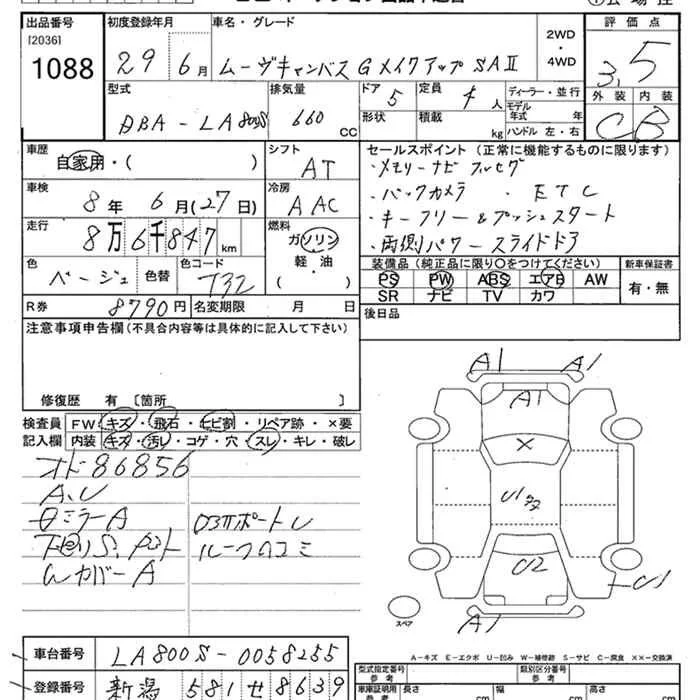 出品番号 [2036] 1088
初度登録年月 29 年 6 月
車名・グレード ムーヴキャンバス GメイクアップSAⅡ
2WD・4WD
評価点 3.5
外装 C 内装 B
型式 DBA-LA800S
排気量 660 CC
ドア 5
形状
定員 4 人
積載 kg
ディーラー・並行
モデル年式 年
ハンドル 左・右
車歴 自家用・( )
シフト AT
車検 8年 6月(27日)
冷房 AAC
走行 8万6千847km
燃料 ガソリン 軽・油 ( )
色 ベージュ 色替 色コード T32
R券 8790円 名変期限 月 日
セールスポイント(正常に機能するものに限ります)
・メモリーナビ フルセグ
・バックカメラ ・ETC
・キーフリー&プッシュスタート
・両側パワースライドドア
装備品(純正品に限り○をつけてください) 新車保証書
PS PW ABS エアB AW 有・無
SR ナビ TV カワ
後日品
注意事項申告欄(不具合内容等は具体的に記入して下さい)
修復歴 有 〔箇所 〕
検査員記入欄 FW キズ・飛石・ヒビ割・リペア跡・×要
内装 キズ・汚レ・コゲ・穴・スレ・キレ・破レ
オド86856
A、U
ミラーA
ポートU
カバーA
A1 A1
A1
×
U1
U2
U1
A1
スペア
A-キズ E-エクボ U-凹み W-補修跡 S-サビ C-腐食 ××-交換済
車台番号 LA800S-0058255
登録番号 新潟 581 せ 8639
型式指定番号 参考 類別区分番号 参考
車庫証明用 参考 長さ cm 幅 cm 高さ cm